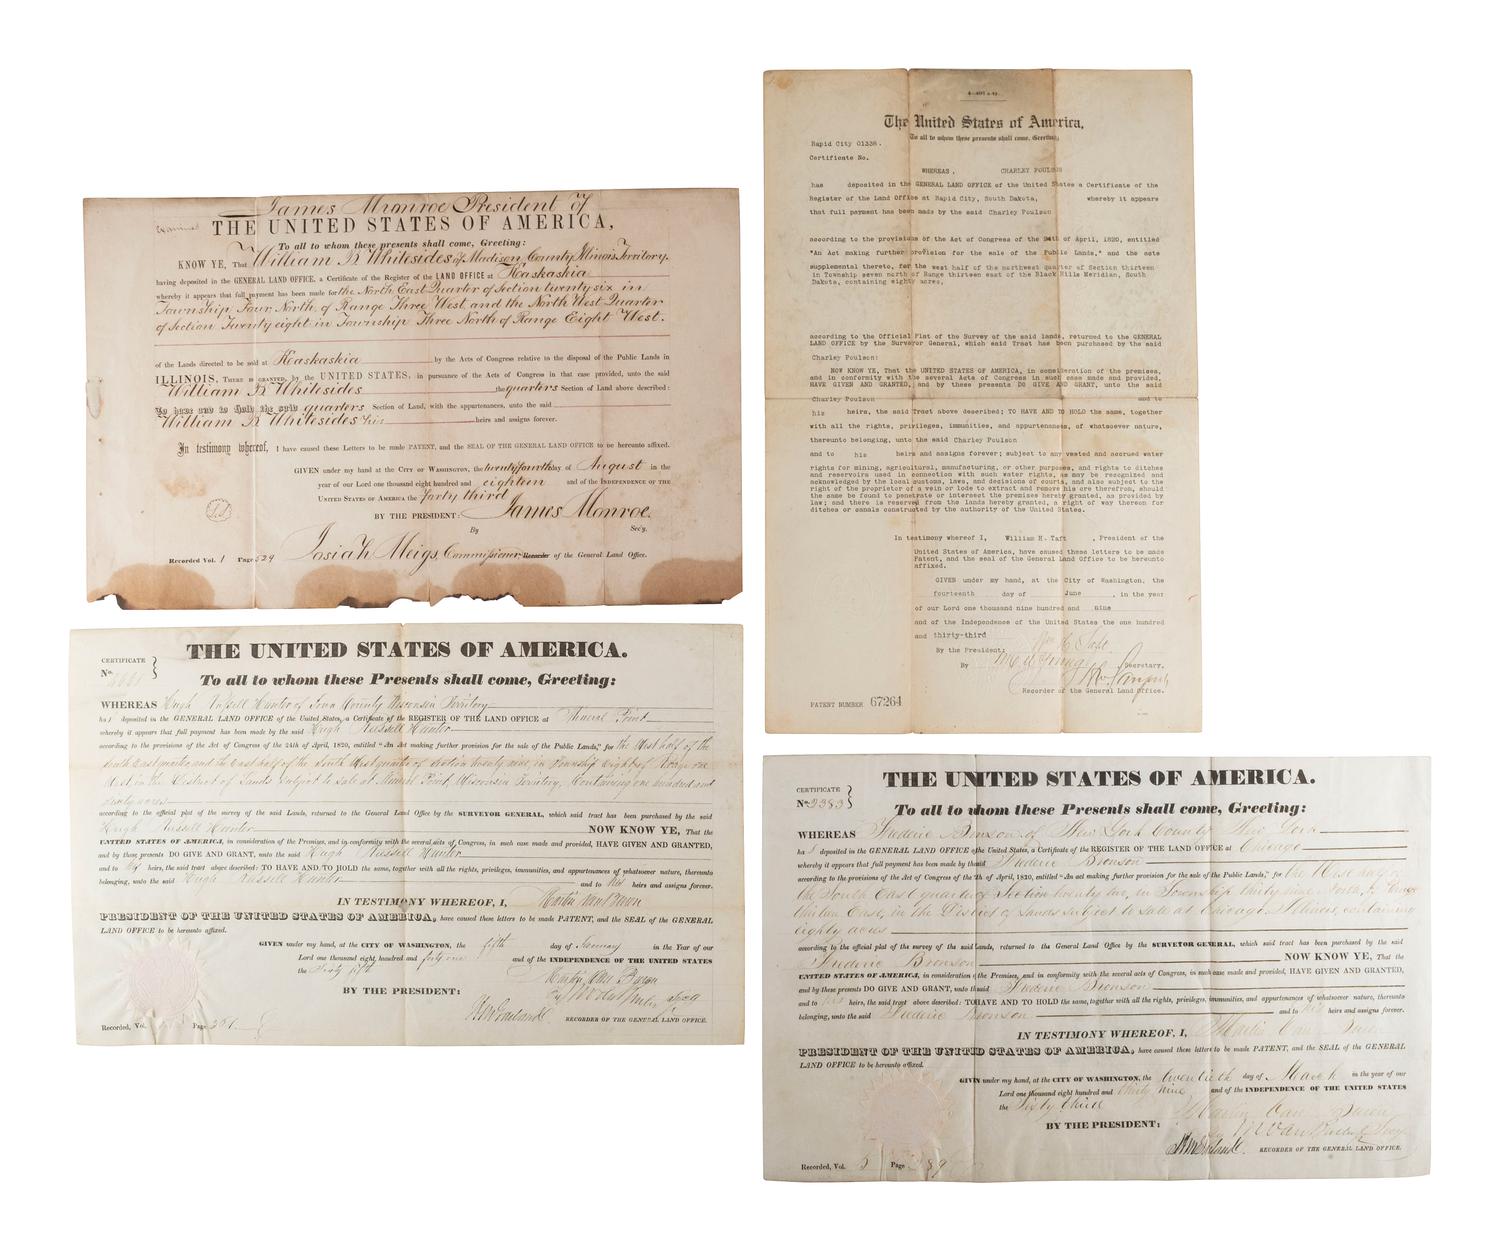 James Monroe President of
examined THE UNITED STATES OF AMERICA,
To all to whom these presents shall come, Greeting:
KNOW YE, That William B Whitesides of Madison County Illinois Territory.
having deposited in the GENERAL LAND OFFICE, a Certificate of the Register of the LAND OFFICE at Kaskaskia
whereby it appears that full payment has been made for the North East Quarter of Section twenty six in
Township Four, North, of Range Three West, and the North West Quarter
of Section Twenty eight in Township Three North of Range Eight West.
of the Lands directed to be sold at Kaskaskia by the Acts of Congress relative to the disposal of the Public Lands in
ILLINOIS, THERE IS GRANTED, by the UNITED STATES, in pursuance of the Acts of Congress in that case provided, unto the said
William B Whitesides the quarters Section of Land above described:
To have and to Hold the said quarters Section of Land, with the appurtenances, unto the said
William B Whitesides his heirs and assigns forever.
In testimony whereof, I have caused these Letters to be made PATENT, and the SEAL OF THE GENERAL LAND OFFICE to be hereunto affixed.
GIVEN under my hand at the CITY OF WASHINGTON, the twenty fourth day of August in the
year of our Lord one thousand eight hundred and eighteen and of the INDEPENDENCE OF THE
UNITED STATES OF AMERICA the forty third
BY THE PRESIDENT: James Monroe.
By Sec'y.
Josiah Meigs, Commissioner Recorder of the General Land Office.
Recorded Vol. 1 Page 529
4-403 a-r1.
The United States of America,
To all to whom these presents shall come, Greeting:
Rapid City 01338.
Certificate No.
WHEREAS, CHARLEY POULSON
has deposited in the GENERAL LAND OFFICE of the United States a Certificate of the
Register of the Land Office at Rapid City, South Dakota, whereby it appears
that full payment has been made by the said Charley Poulson
according to the provisions of the Act of Congress of the 24th of April, 1820, entitled
"An Act making further provision for the sale of the Public Lands," and the acts
supplemental thereto, for the west half of the northwest quarter of Section thirteen
in Township seven north of Range thirteen east of the Black Hills Meridian, South
Dakota, containing eighty acres,
according to the Official Plat of the Survey of the said lands, returned to the GENERAL
LAND OFFICE by the Surveyor General, which said Tract has been purchased by the said
Charley Poulson:
NOW KNOW YE, That the UNITED STATES OF AMERICA, in consideration of the premises,
and in conformity with the several Acts of Congress in such case made and provided,
HAVE GIVEN AND GRANTED, and by these presents DO GIVE AND GRANT, unto the said
Charley Poulson and to
his heirs, the said Tract above described; TO HAVE AND TO HOLD the same, together
with all the rights, privileges, immunities, and appurtenances, of whatsoever nature,
thereunto belonging, unto the said Charley Poulson
and to his heirs and assigns forever; subject to any vested and accrued water
rights for mining, agricultural, manufacturing, or other purposes, and rights to ditches
and reservoirs used in connection with such water rights, as may be recognized and
acknowledged by the local customs, laws, and decisions of courts, and also subject to the
right of the proprietor of a vein or lode to extract and remove his ore therefrom, should
the same be found to penetrate or intersect the premises hereby granted, as provided by
law; and there is reserved from the lands hereby granted, a right of way thereon for
ditches or canals constructed by the authority of the United States.
In testimony whereof I, William H. Taft, President of the
United States of America, have caused these letters to be made
Patent, and the seal of the General Land Office to be hereunto
affixed.
GIVEN under my hand, at the City of Washington, the
fourteenth day of June, in the year
of our Lord one thousand nine hundred and nine
and of the Independence of the United States the one hundred
and thirty-third
By the President: Wm H Taft
By Secretary,
Recorder of the General Land Office.
PATENT NUMBER 67264
THE UNITED STATES OF AMERICA.
CERTIFICATE
No.
To all to whom these Presents shall come, Greeting:
WHEREAS Hugh Russell Hunter of Iowa County Wisconsin Territory
has deposited in the GENERAL LAND OFFICE of the United States, a Certificate of the REGISTER OF THE LAND OFFICE at Mineral Point
whereby it appears that full payment has been made by the said Hugh Russell Hunter
according to the provisions of the Act of Congress of the 24th of April, 1820, entitled "An Act making further provision for the sale of the Public Lands," for the West half of the
South East quarter and the East half of the South West quarter of Section twenty nine, in Township Eight of Range one
West, in the District of Lands subject to sale at Mineral Point, Wisconsin Territory, Containing one hundred and
sixty acres
according to the official plat of the survey of the said Lands, returned to the General Land Office by the SURVEYOR GENERAL, which said tract has been purchased by the said
Hugh Russell Hunter NOW KNOW YE, That the
UNITED STATES OF AMERICA, in consideration of the Premises, and in conformity with the several acts of Congress, in such case made and provided, HAVE GIVEN AND GRANTED,
and by these presents DO GIVE AND GRANT, unto the said Hugh Russell Hunter
and to his heirs, the said tract above described: TO HAVE AND TO HOLD the same, together with all the rights, privileges, immunities, and appurtenances of whatsoever nature, thereunto
belonging, unto the said Hugh Russell Hunter and to his heirs and assigns forever.
IN TESTIMONY WHEREOF, I, Martin Van Buren
PRESIDENT OF THE UNITED STATES OF AMERICA, have caused these Letters to be made PATENT, and the SEAL of the GENERAL
LAND OFFICE to be hereunto affixed.
GIVEN under my hand, at the CITY OF WASHINGTON, the fifth day of January in the Year of our
Lord one thousand eight hundred and forty one and of the INDEPENDENCE OF THE UNITED STATES
the Sixty fifth
BY THE PRESIDENT: Martin Van Buren
By Secy
RECORDER OF THE GENERAL LAND OFFICE.
Recorded, Vol. Page
THE UNITED STATES OF AMERICA.
CERTIFICATE
No. 2383
To all to whom these Presents shall come, Greeting:
WHEREAS Frederic Bronson of New York County New York
has deposited in the GENERAL LAND OFFICE of the United States, a Certificate of the REGISTER OF THE LAND OFFICE at Chicago
whereby it appears that full payment has been made by the said Frederic Bronson
according to the provisions of the Act of Congress of the 24th of April, 1820, entitled "An Act making further provision for the sale of the Public Lands," for the West half of
the South East quarter of Section twenty two, in Township thirty nine North, of Range
thirteen East, in the District of Lands subject to sale at Chicago Illinois, containing
eighty acres
according to the official plat of the survey of the said Lands, returned to the General Land Office by the SURVEYOR GENERAL, which said tract has been purchased by the said
Frederic Bronson NOW KNOW YE, That the
UNITED STATES OF AMERICA, in consideration of the Premises, and in conformity with the several acts of Congress, in such case made and provided, HAVE GIVEN AND GRANTED,
and by these presents DO GIVE AND GRANT, unto the said Frederic Bronson
and to his heirs, the said tract above described: TO HAVE AND TO HOLD the same, together with all the rights, privileges, immunities, and appurtenances of whatsoever nature, thereunto
belonging, unto the said Frederic Bronson and to his heirs and assigns forever.
IN TESTIMONY WHEREOF, I, Martin Van Buren
PRESIDENT OF THE UNITED STATES OF AMERICA, have caused these Letters to be made PATENT, and the SEAL of the GENERAL
LAND OFFICE to be hereunto affixed.
GIVEN under my hand, at the CITY OF WASHINGTON, the twentieth day of March in the year of our
Lord one thousand eight hundred and thirty nine and of the INDEPENDENCE OF THE UNITED STATES
the Sixty third
BY THE PRESIDENT: Martin Van Buren
By M Van Buren Jr Secy
RECORDER OF THE GENERAL LAND OFFICE.
Recorded, Vol. 5 Page 389